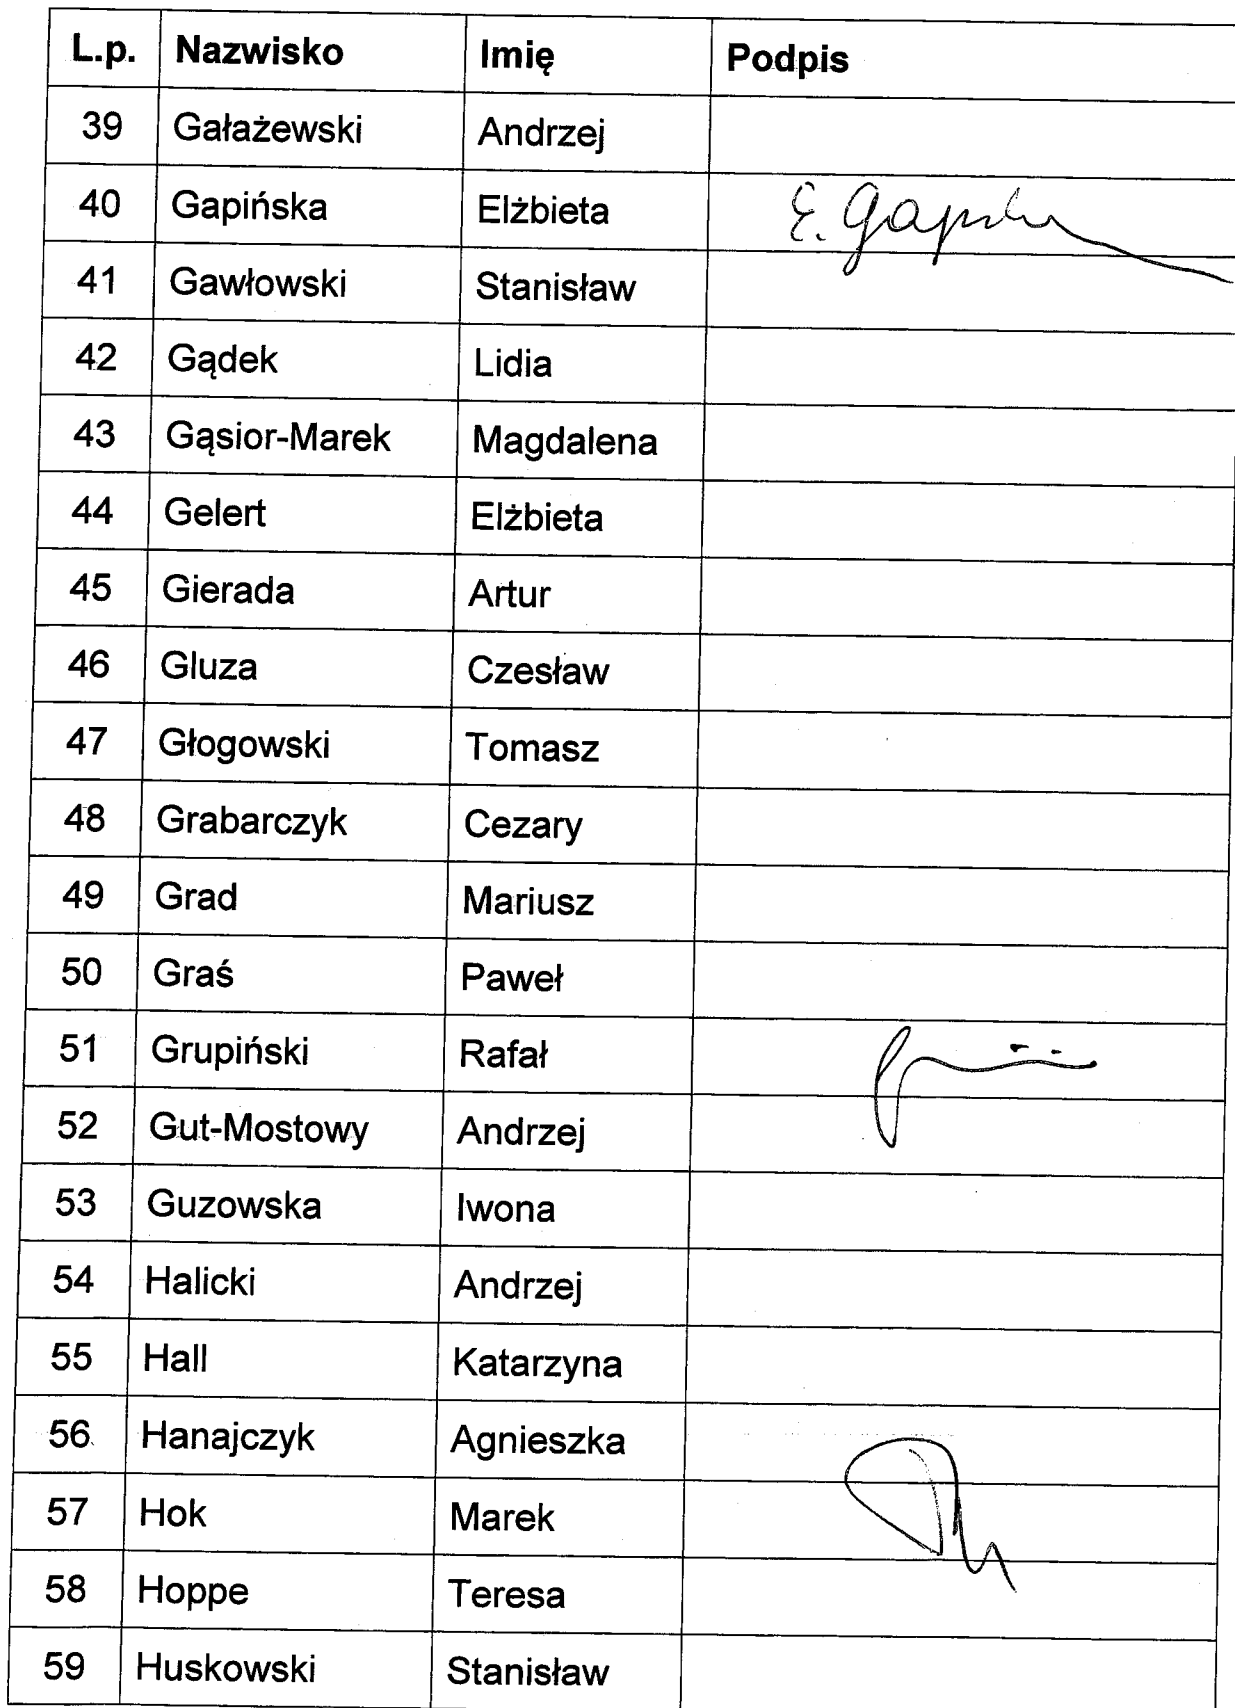 L.p. Nazwisko Imię Podpis
39 Gałażewski Andrzej
40 Gapińska Elżbieta E.
41 Gawłowski Stanisław
42 Gądek Lidia
43 Gąsior-Marek Magdalena
44 Gelert Elżbieta
45 Gierada Artur
46 Gluza Czesław
47 Głogowski Tomasz
48 Grabarczyk Cezary
49 Grad Mariusz
50 Graś Paweł
51 Grupiński Rafał
52 Gut-Mostowy Andrzej
53 Guzowska Iwona
54 Halicki Andrzej
55 Hall Katarzyna
56 Hanajczyk Agnieszka
57 Hok Marek
58 Hoppe Teresa
59 Huskowski Stanisław